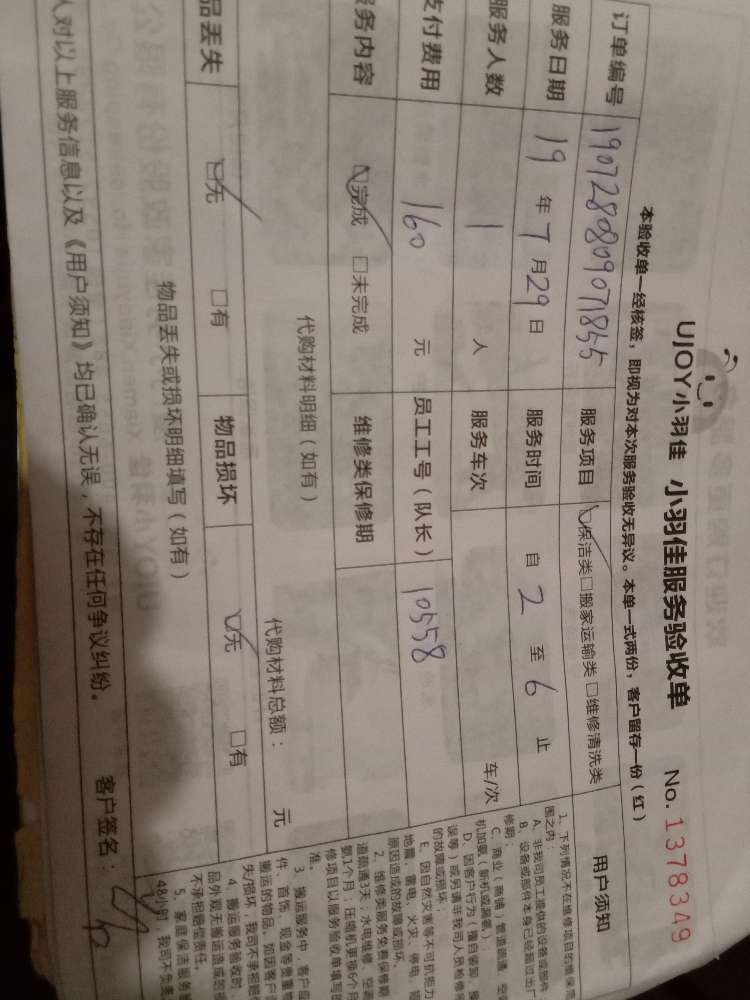 UJOY小羽佳 小羽佳服务验收单 No. 1378349
本验收单一经核签，即视为对本次服务验收无异议。本单一式两份，客户留存一份（红）
订单编号 190728080907 1855 服务项目 ☑保洁类□搬家运输类□维修清洗类
服务日期 19 年 7 月 29 日 服务时间 自 2 至 6 止
服务人数 1 人 服务车次 车/次
支付费用 160 元 员工工号（队长） 10558
服务内容 ☑完成 □未完成 维修类保修期
代购材料明细（如有） 代购材料总额： 元
品丢失 ☑无 □有 物品损坏 ☑无 □有
物品丢失或损坏明细填写（如有）
人对以上服务信息以及《用户须知》均已确认无误，不存在任何争议纠纷。 客户签名：
用户须知
1、下列情况不在维修项目的维保范
围之内：
A、非我司员工提供的设备或部件
B、设备或部件本身已经超过出厂
修期；
C、商业（商铺）管道疏通、空
机加氨（新机或漏氨）；
D、因客户行为（擅自装卸、操
误等）或另请非我司人员检修
的故障或损坏；
E、因自然灾害等不可抗拒力
地震、雷电、火灾、停电、
原因造成的故障或损坏。
2、维修类服务免费保修期
道疏通3天；水电维修、空调
氨1个月；压缩机更换6个月
修项目以服务验收单填写的
准。
3、搬运服务中，客户应
件、首饰、现金等贵重物
搬运的物品，如因客户
失/损坏，我司不承担赔
4、搬运服务验收时
品外观无搬运造成的
不承担赔偿责任。
5、家庭保洁服务
48小时，我司不负责